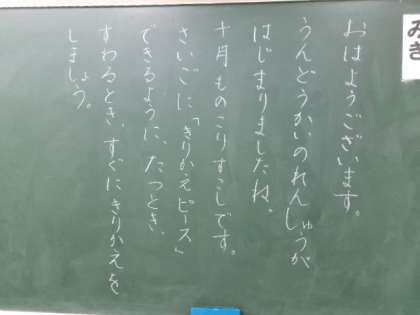 おはようございます。
うんどうかいのれんしゅうが
はじまりましたね。
十月ものこりすこしです。
さいごに「きりかえピース」
できるように、たつとき、
すわるとき、すぐにきりかえを
しましょう。